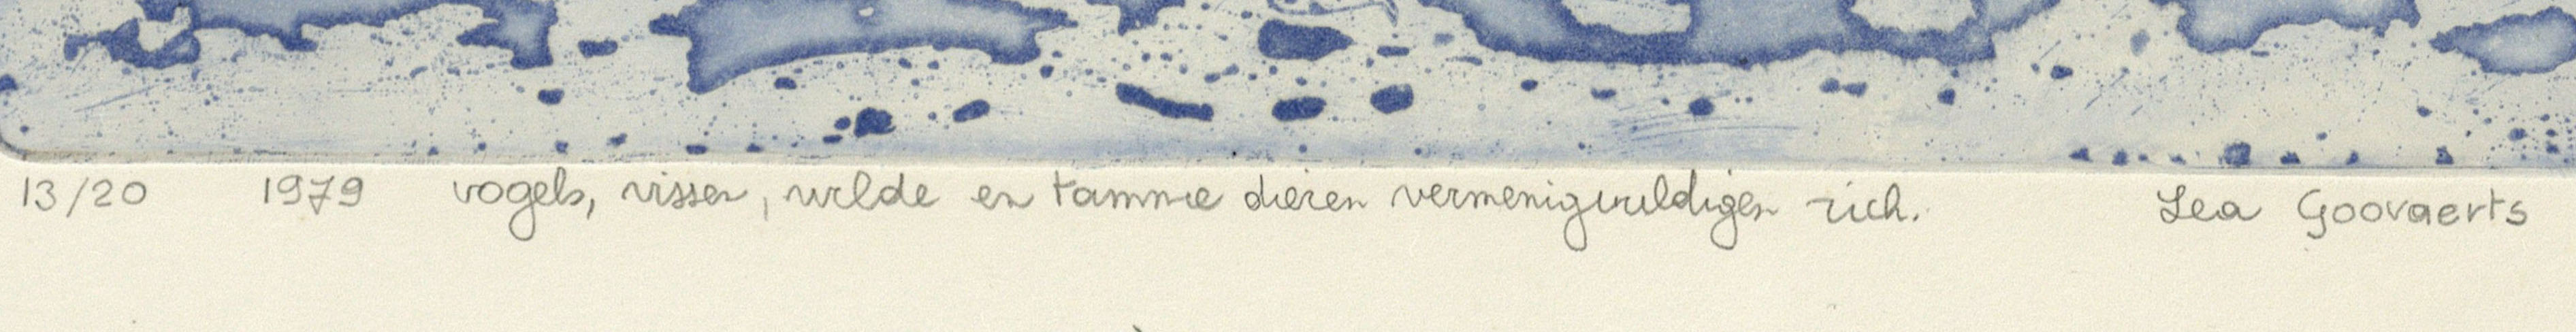 13/20 1979 vogels, vissen, wilde en tamme dieren vermenigvuldigen zich. Lea Goovaerts